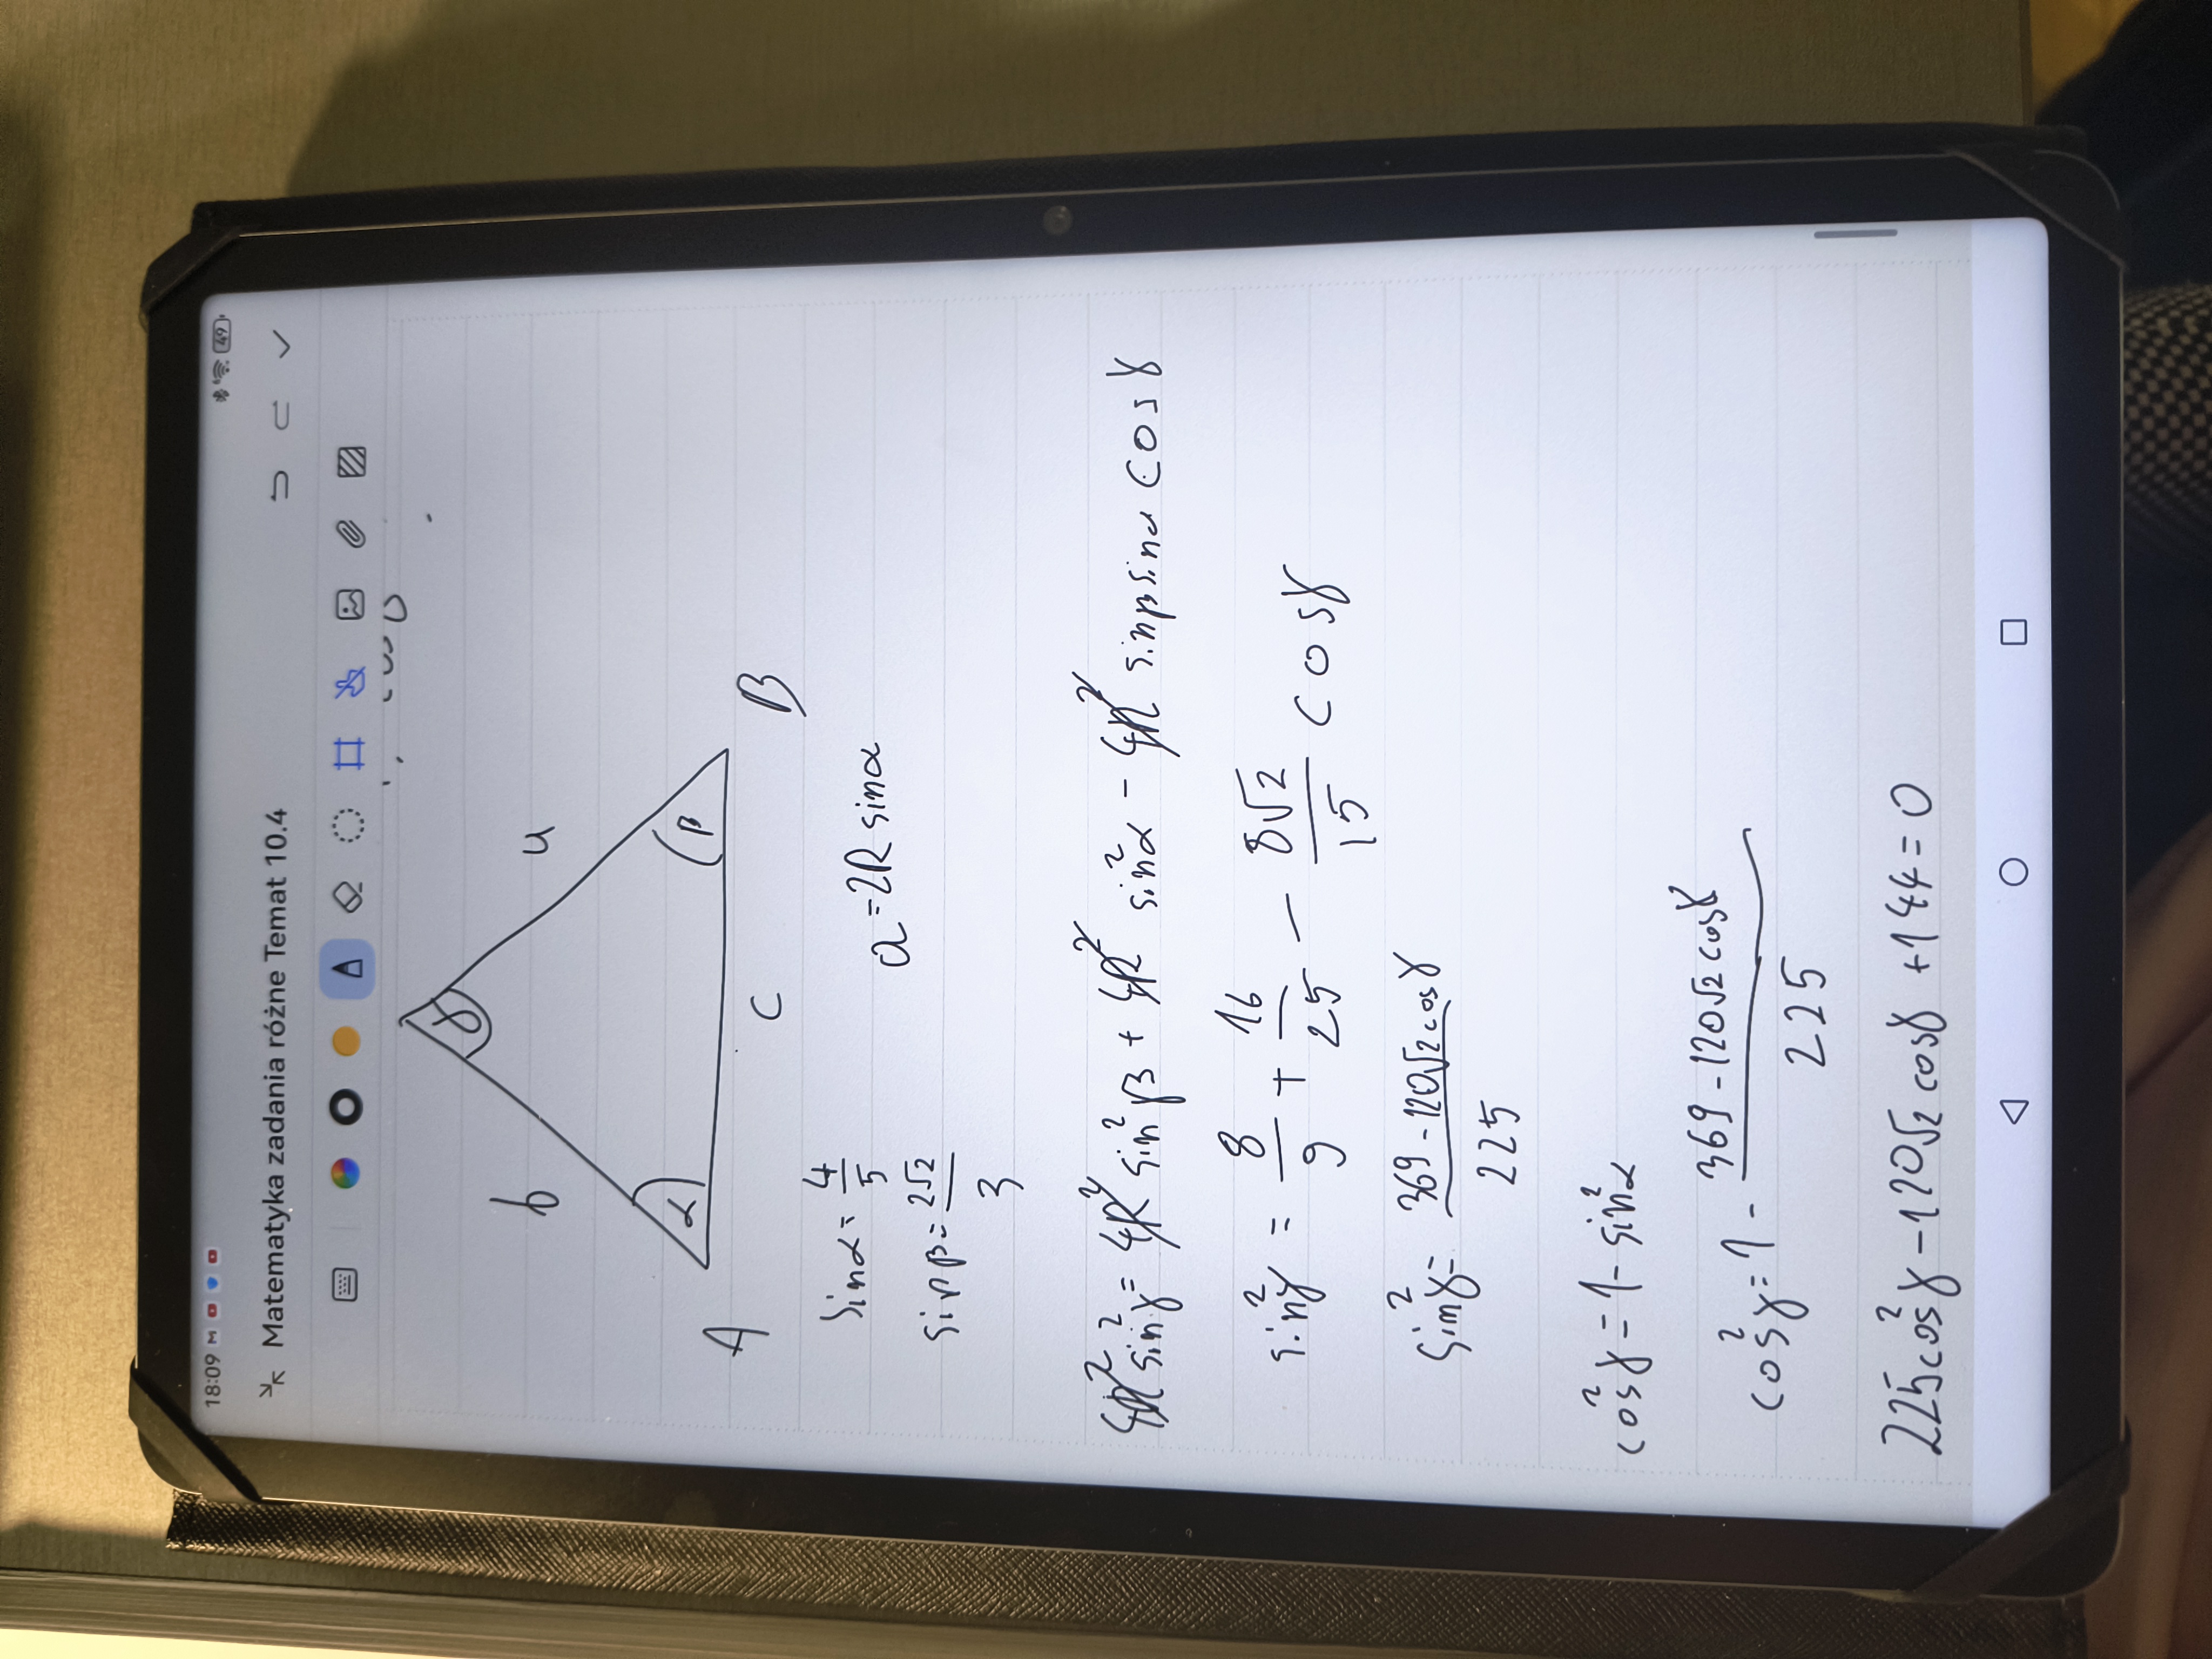 18:09
49
Matematyka zadania różne Temat 10.4
γ
b
a
α
β
A
c
B
sinα = 4/5
a = 2R sinα
sinβ = 2√2/3
4R² sin²γ = 4R² sin²β + 4R² sin²α - 4R² sinβ sinα cosγ
sin²γ = 8/9 + 16/25 - 8√2/15 cosγ
sin²γ = 369 - 120√2 cosγ / 225
cos²γ = 1 - sin²α
cos²γ = 1 - 369 - 120√2 cosγ / 225
225cos²γ - 120√2 cosγ + 144 = 0